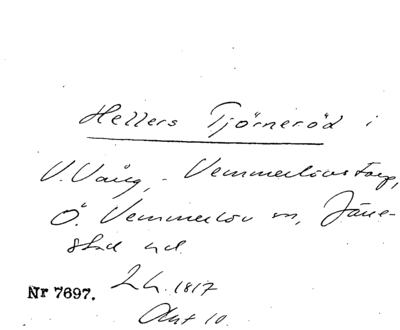 Hellers Tjörneröd i
V. Vång, Vemmerlövstorp,
Ö. Vemmerlöv m, Jäne-
stad
Nr 7697. 2 h. 1817
Akt 10